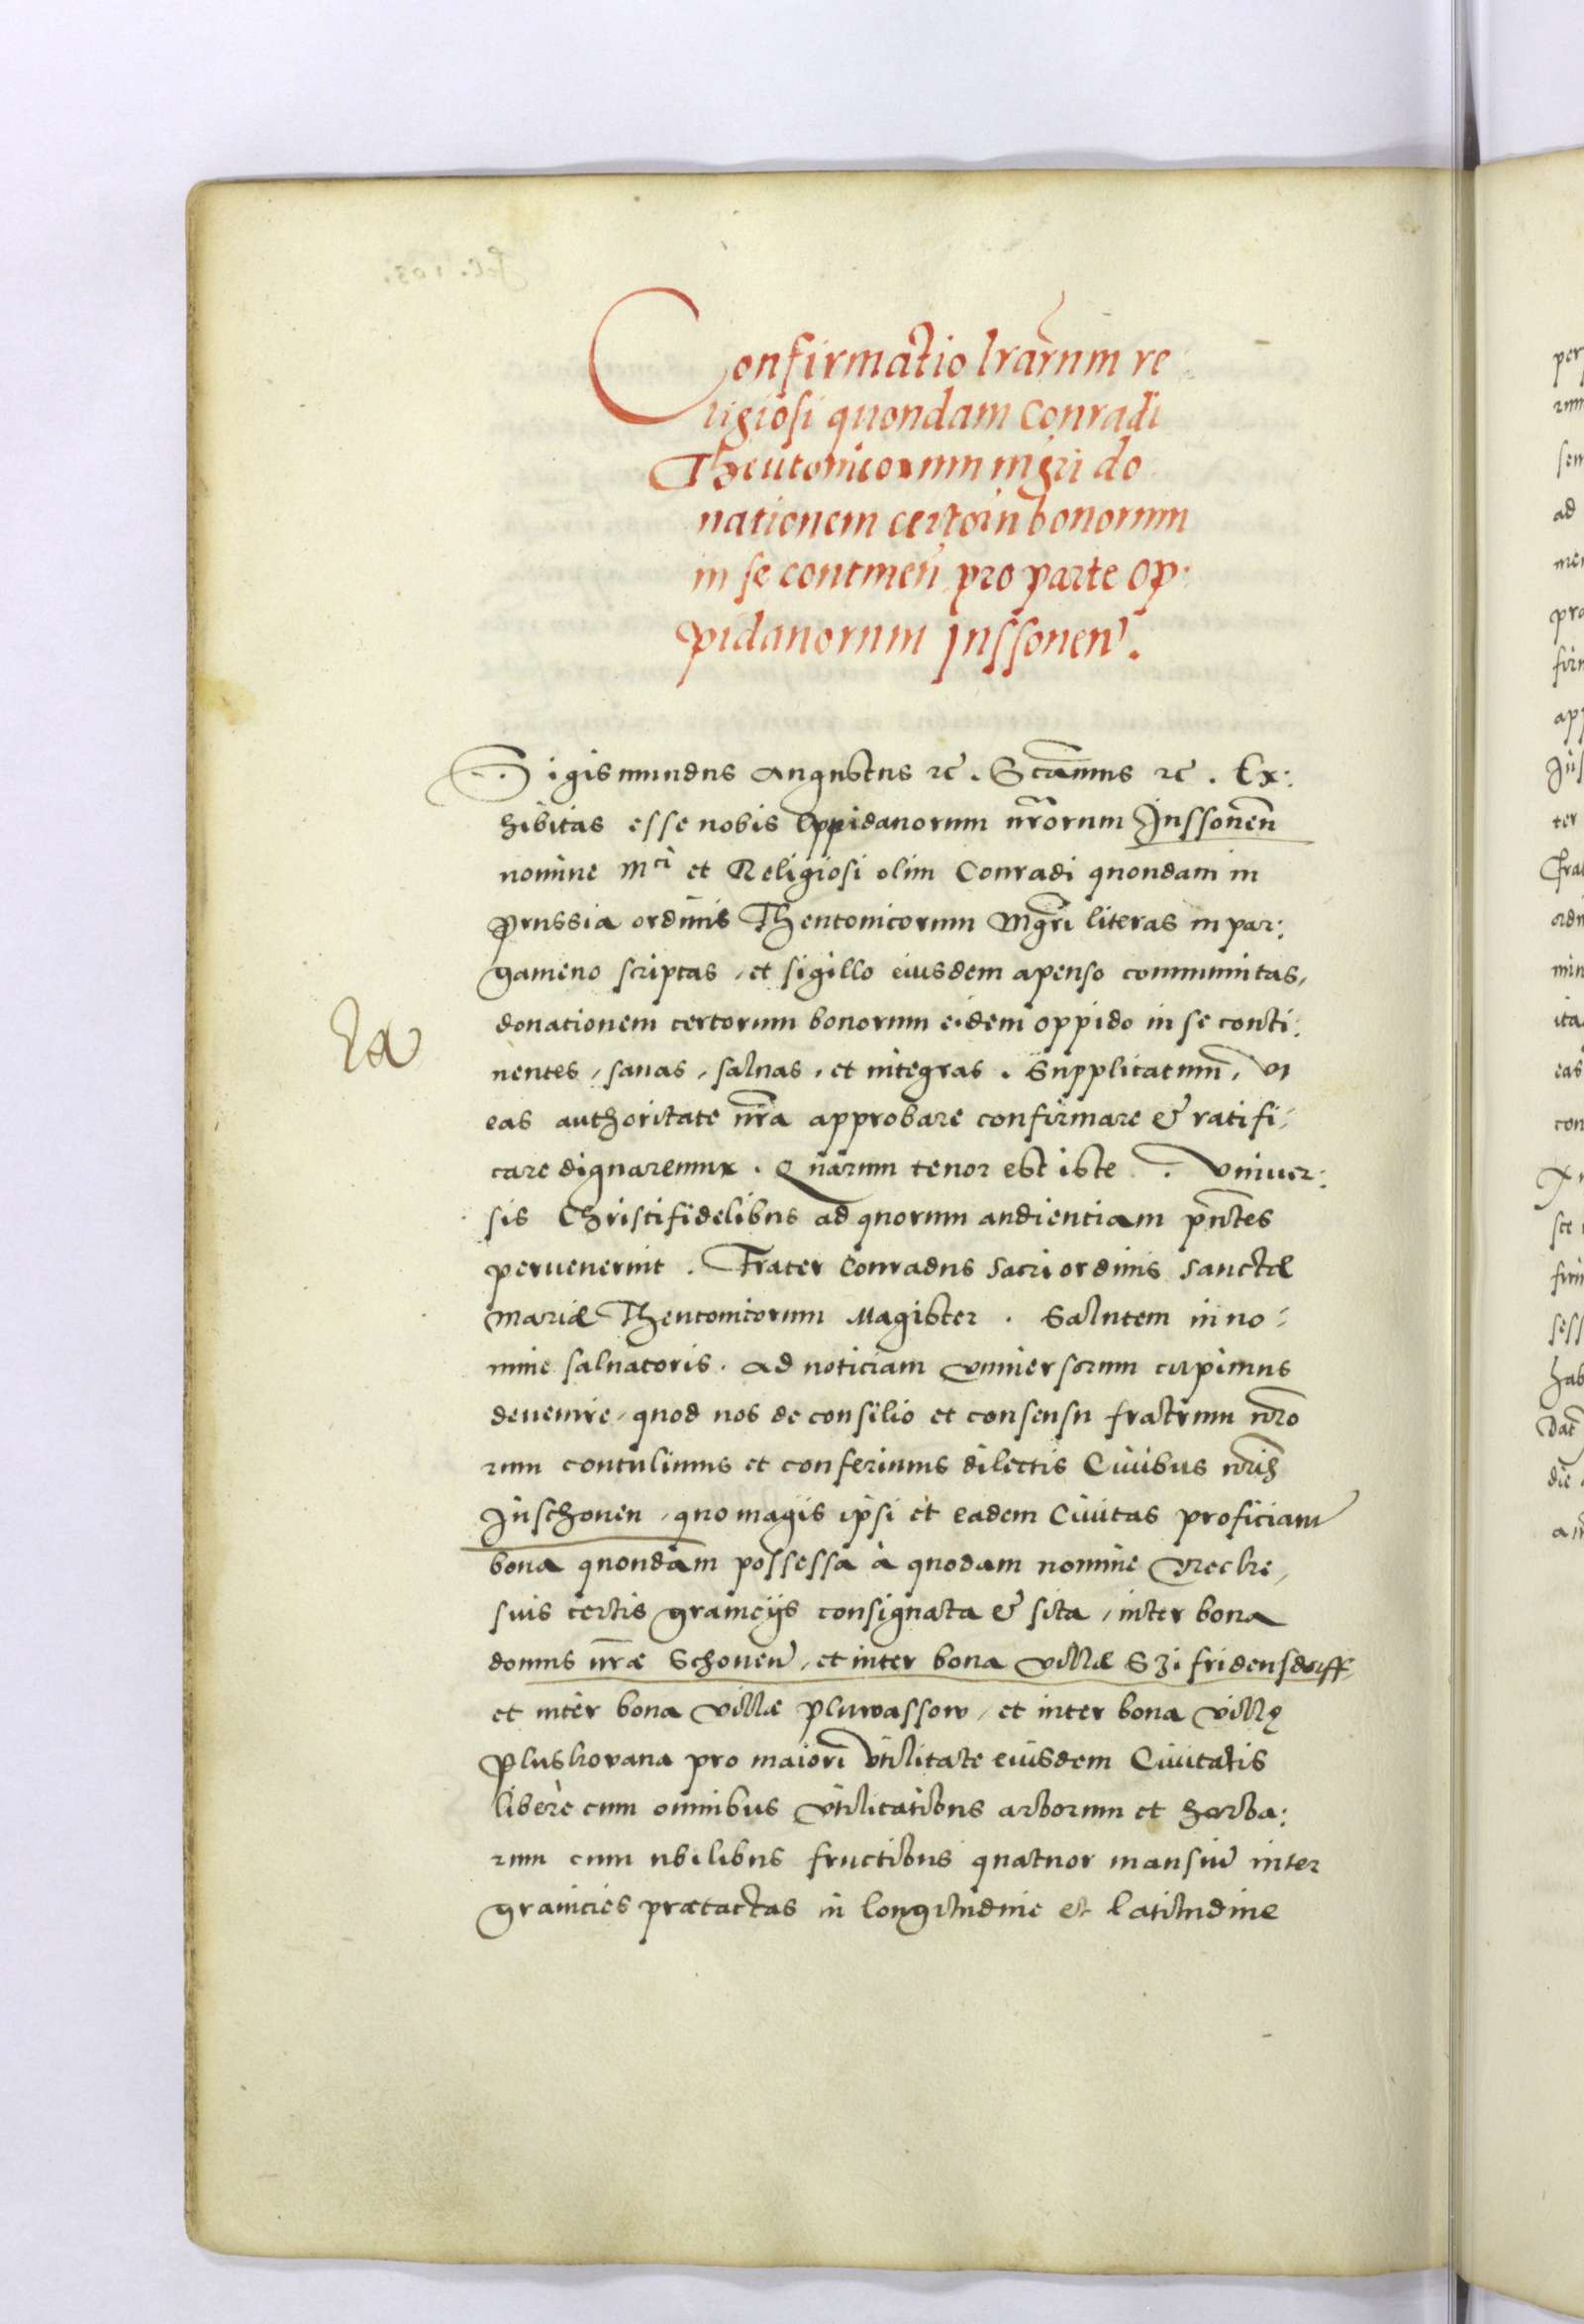 Confirmatio lrarum re
ligiosi quondam Conradi
Theutonicorum mgri do
nationem certorum bonorum
in se continen pro parte op
pidanorum Jussonen.
Sigismundus Augustus rc. Scamus rc. Ex:
hibitas esse nobis Oppidanorum nrorum Jussonen
nomine Mci et Religiosi olim Conradi quondam in
Prussia ordinis Theutonicorum Mgri literas in par:
gameno scriptas, et sigillo eiusdem apenso communitas,
donationem certorum bonorum eidem oppido in se conti:
nentes, sanas, saluas, et integras. Supplicatum, vt
eas authoritate nra approbare confirmare & ratifi-
care dignaremur. Quarum tenor est iste. Vniuer:
sis Christifidelibus ad quorum audientiam pntes
peruenerint. Frater Conradus sacri ordinis sanctæ
Mariæ Theutonicorum Magister. Salutem in no-
mine saluatoris. Ad noticiam vniuersorum cupimus
deuenire, quod nos de consilio et consensu fratrum nro
rum contulimus et conferimus dilectis Ciuibus nris
Juschonen, quo magis ipsi et eadem Ciuitas proficiant
bona quondam possessa à quodam nomine Vrecke,
suis certis graniciis consignata & sita, inter bona
domus nræ Schonen, et inter bona villæ Szifridensdorff,
et inter bona villæ Pluwassow, et inter bona villę
Pluskovana pro maiori vtilitate eiusdem Ciuitatis
liberè cum omnibus vtilitatibus arborum et herba:
rum cum vbilibus fructibus quatuor mansiu inter
granicies prætactas in longitudine et latitudine